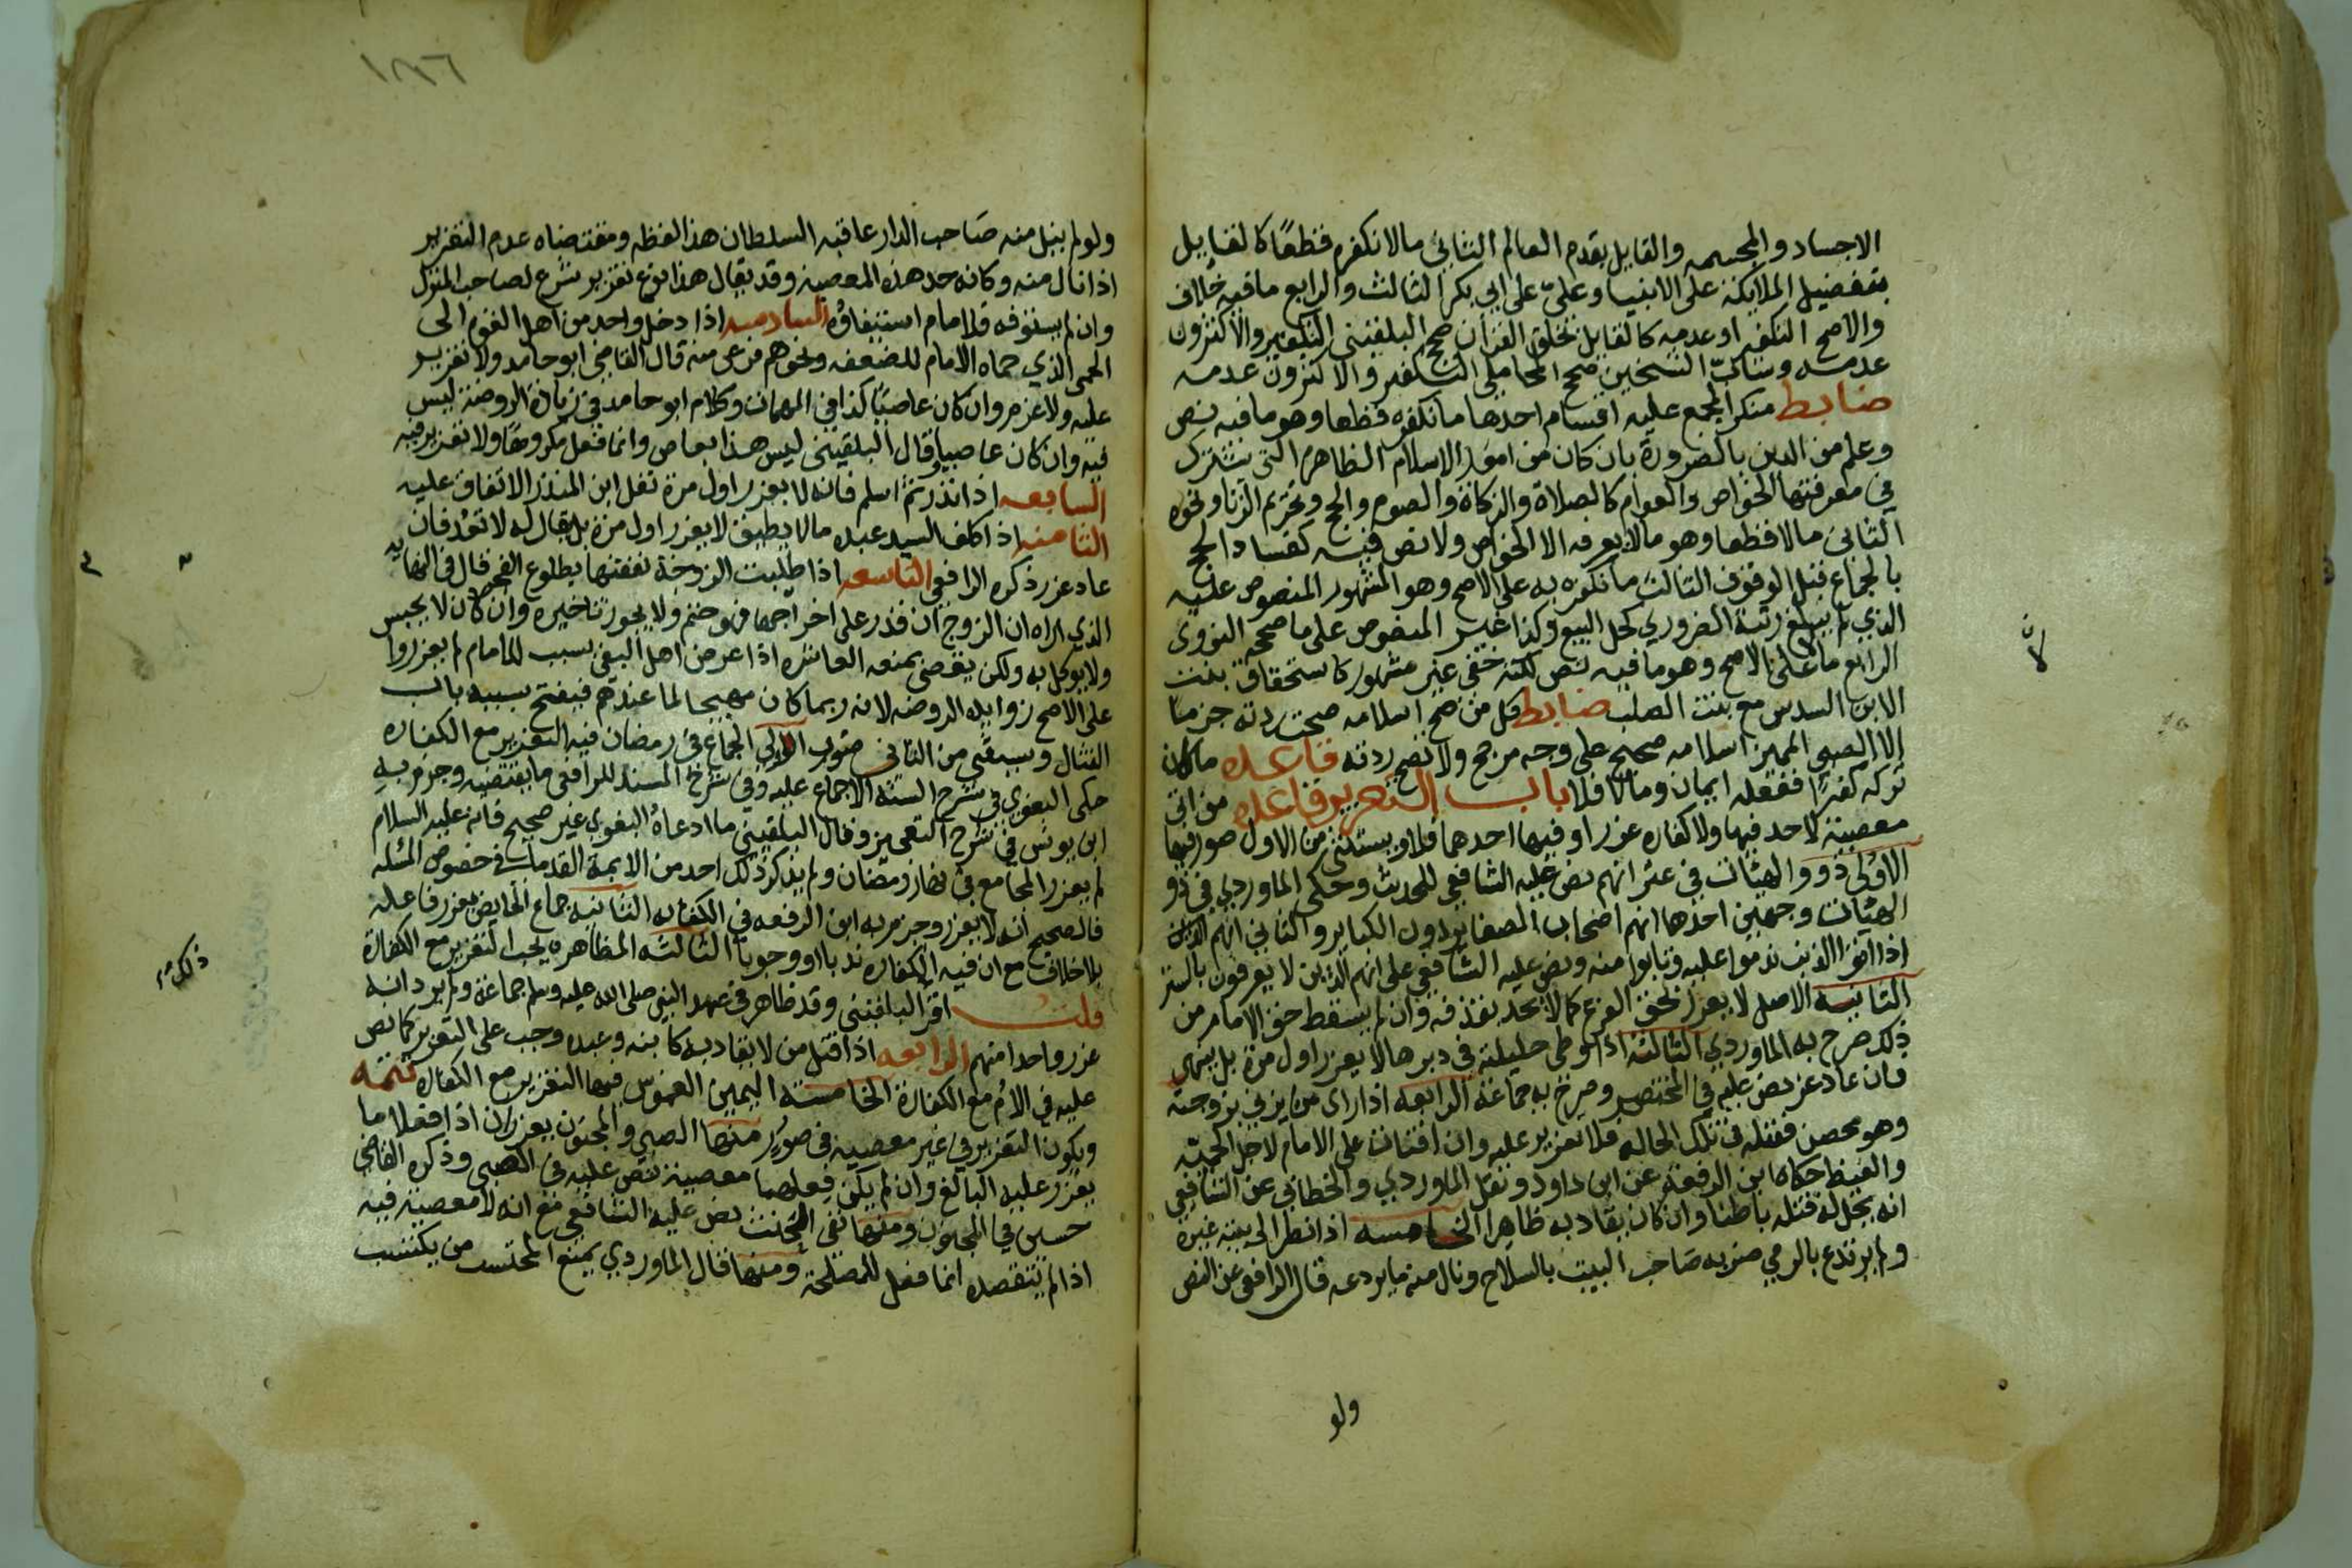 الاجساد والمجسمه والقايل بقدم العالم الثاني مالا نكفره قطعًا كالقايل
بتفضيل الملايكة على الانبيا وعليّ على ابي بكر الثالث والرابع ما فيه خلاف
والاصح التكفير او عدمه كالقايل بخلق القران صحح البلقيني التكفير والاكثرون
عدمه وسابّ الشيخين صحح المحاملي التكفير والاكثرون عدمه
ضابط منكر المجمع عليه اقسام احدها ما نكفره قطعا وهو ما فيه نص
وعلم من الدين بالضرورة بان كان من امور الاسلام الظاهرة التي يشترك
في معرفتها الخواص والعوام كالصلاة والزكاة والصوم والحج وتحريم الزنا ونحوه
الثاني مالا قطعا وهو مالا يعرفه الا الخواص ولا نص فيه كفساد الحج
بالجماع قبل الوقوف الثالث ما نكفره به على الاصح وهو المشهور المنصوص عليه
الذي لم يبلغ رتبة الضروري كحل البيع وكذا غير المنصوص على ما صححه النووي
الرابع ما على الاصح وهو ما فيه نص لكنه خفى غير مشهور كاستحقاق بنت
الابن السدس مع بنت الصلب ضابط كل من صح اسلامه صحت ردته جزما
الا الصبي المميز اسلامه صحيح على وجه مرجح ولا تصح ردته قاعده ما كان
تركه كفرًا ففعله ايمان ومالا فلا باب التعزير قاعده من اتى
معصية لا حد فيها ولا كفارة عزر او فيها احدهما فلا ويستثنى من الاول صور فيها
الاولى ذوو الهيئات في عثراتهم نص عليه الشافعي للحديث وحكى الماوردي في ذو
الهيئات وجهين احدها انهم اصحاب الصغاير دون الكباير والثاني انهم الذين
اذا اتوا الذنب ندموا عليه وتابوا منه ونص عليه الشافعي على انهم الذين لا يعرفون بالشر
الثانيه الاصل لا يعزر لحق الفرع كما لا يحد بقذفه وان لم يسقط حق الامام من
ذلك صرح به الماوردي الثالثة اذا وطي حليلته في دبرها لا يعزر اول مرة بل ينهى
فان عاد عزر نص عليه في المختصر وصرح به جماعة الرابعه اذا راى من يزني بزوجته
وهو محصن فقتله في تلك الحاله فلا تعزير عليه وان افتات على الامام لاجل الحميّه
والغيظ حكاه ابن الرفعة عن ابن داود ونقل الماوردي والخطابي عن الشافعي
انه يحل له قتله باطنا وان كان يقاد به ظاهرا الخامسه اذا نظر الى بيت غيره
ولم يرتدع بالرمي ضربه صاحب البيت بالسلاح ونال منه ما يردعه قال الرافعي عن النص
لان
ولو
١٨٦
ولو لم ينل منه صاحب الدار عاقبه السلطان هذا لفظه ومقتضاه عدم التعزير
اذا نال منه وكانه حد هذه المعصية وقد يقال هذا نوع تعزير شرع لصاحب المنزل
وان لم يستوفه فللامام استيفاؤه السادسه اذا دخل واحد من اهل القوم الى
الحمى الذي حماه الامام للضعفه ونحوهم فرعى منه قال القاضي ابو حامد ولا تعزير
عليه ولا غرم وان كان عاصيًا كذا في المهمات وكلام ابو حامد في زيادة الروضة ليس
فيه وان كان عاصيا وقال البلقيني ليس هذا بعاص وانما فعل مكروهًا ولا تعزير فيه
السابعه اذا ارتد ثم اسلم فانه لا يعزر اول مرة نقل ابن المنذر الاتفاق عليه
الثامنه اذا كلف السيد عبده مالا يطيق لا يعزر اول مرة بل يقال له لا تعد فان
عاد عزر ذكره الرافعي التاسعه اذا طلبت الزوجة نفقتها بطلوع الفجر قال في النهايه
الذي اراه ان الزوج ان قدر على اخراجها فهو حتم ولا يجوز تاخيره وان كان لا يحبس
ولا يوكل به ولكن يعصى بمنعه العاشره اذا عرض اهل البغي بسبب للامام لم يعزروا
على الاصح زوايد الروضه لانه ربما كان مهيجا لما عندهم فيفتح بسببه باب
القتال ويستثنى من الثاني صور الاولى الجماع في رمضان فيه التعزير مع الكفاره
حكى البغوي في شرح السنة الاجماع عليه وفي شرح المسند للرافعي ما يقتضيه وجزم به
ابن يونس في شرح التعجيز وقال البلقيني ما ادعاه البغوي غير صحيح فانه عليه السلام
لم يعزر المجامع في نهار رمضان ولم يذكر ذلك احد من الايمة القدما في خصوص المسئله
فالصحيح انه لا يعزر وجزم به ابن الرفعه في الكفايه الثانيه جماع الحايض يعزر فاعله
بلا خلاف مع ان فيه الكفاره ندبا او وجوبا الثالثه المظاهره يجب التعزير مع الكفارة
قلت اقره البلقيني وقد ظاهر في عهد النبي صلى الله عليه وسلم جماعة ولم يرد انه
عزر واحدا منهم الرابعه اذا قتل من لا يقاد به كابنه وعبده وجب على التعزير كما نص
عليه في الأم مع الكفارة الخامسه اليمين الغموس فيها التعزير مع الكفاره تتمه
ويكون التعزير في غير معصيه في صور منها الصبي والمجنون يعزران اذا فعلا ما
يعزر عليه البالغ وان لم يكن فعلهما معصية نص عليه في الصبي وذكره القاضي
حسين في المجنون ومنها نفي المخنث نص عليه الشافعي مع انه لا معصية فيه
اذا لم يقصده انما فعل للمصلحة ومنها قال الماوردي يمنع المحتسب من يكتسب
ذلك